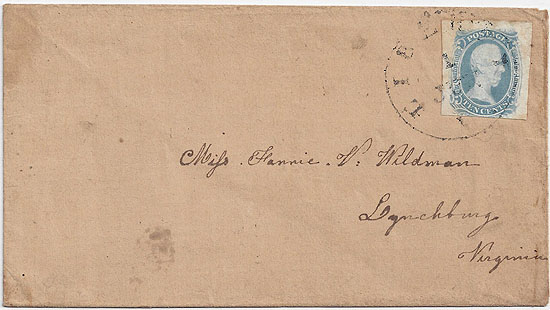 POSTAGE
TEN CENTS
Miss. Fannie. V. Wildman
Lynchburg
Virginia